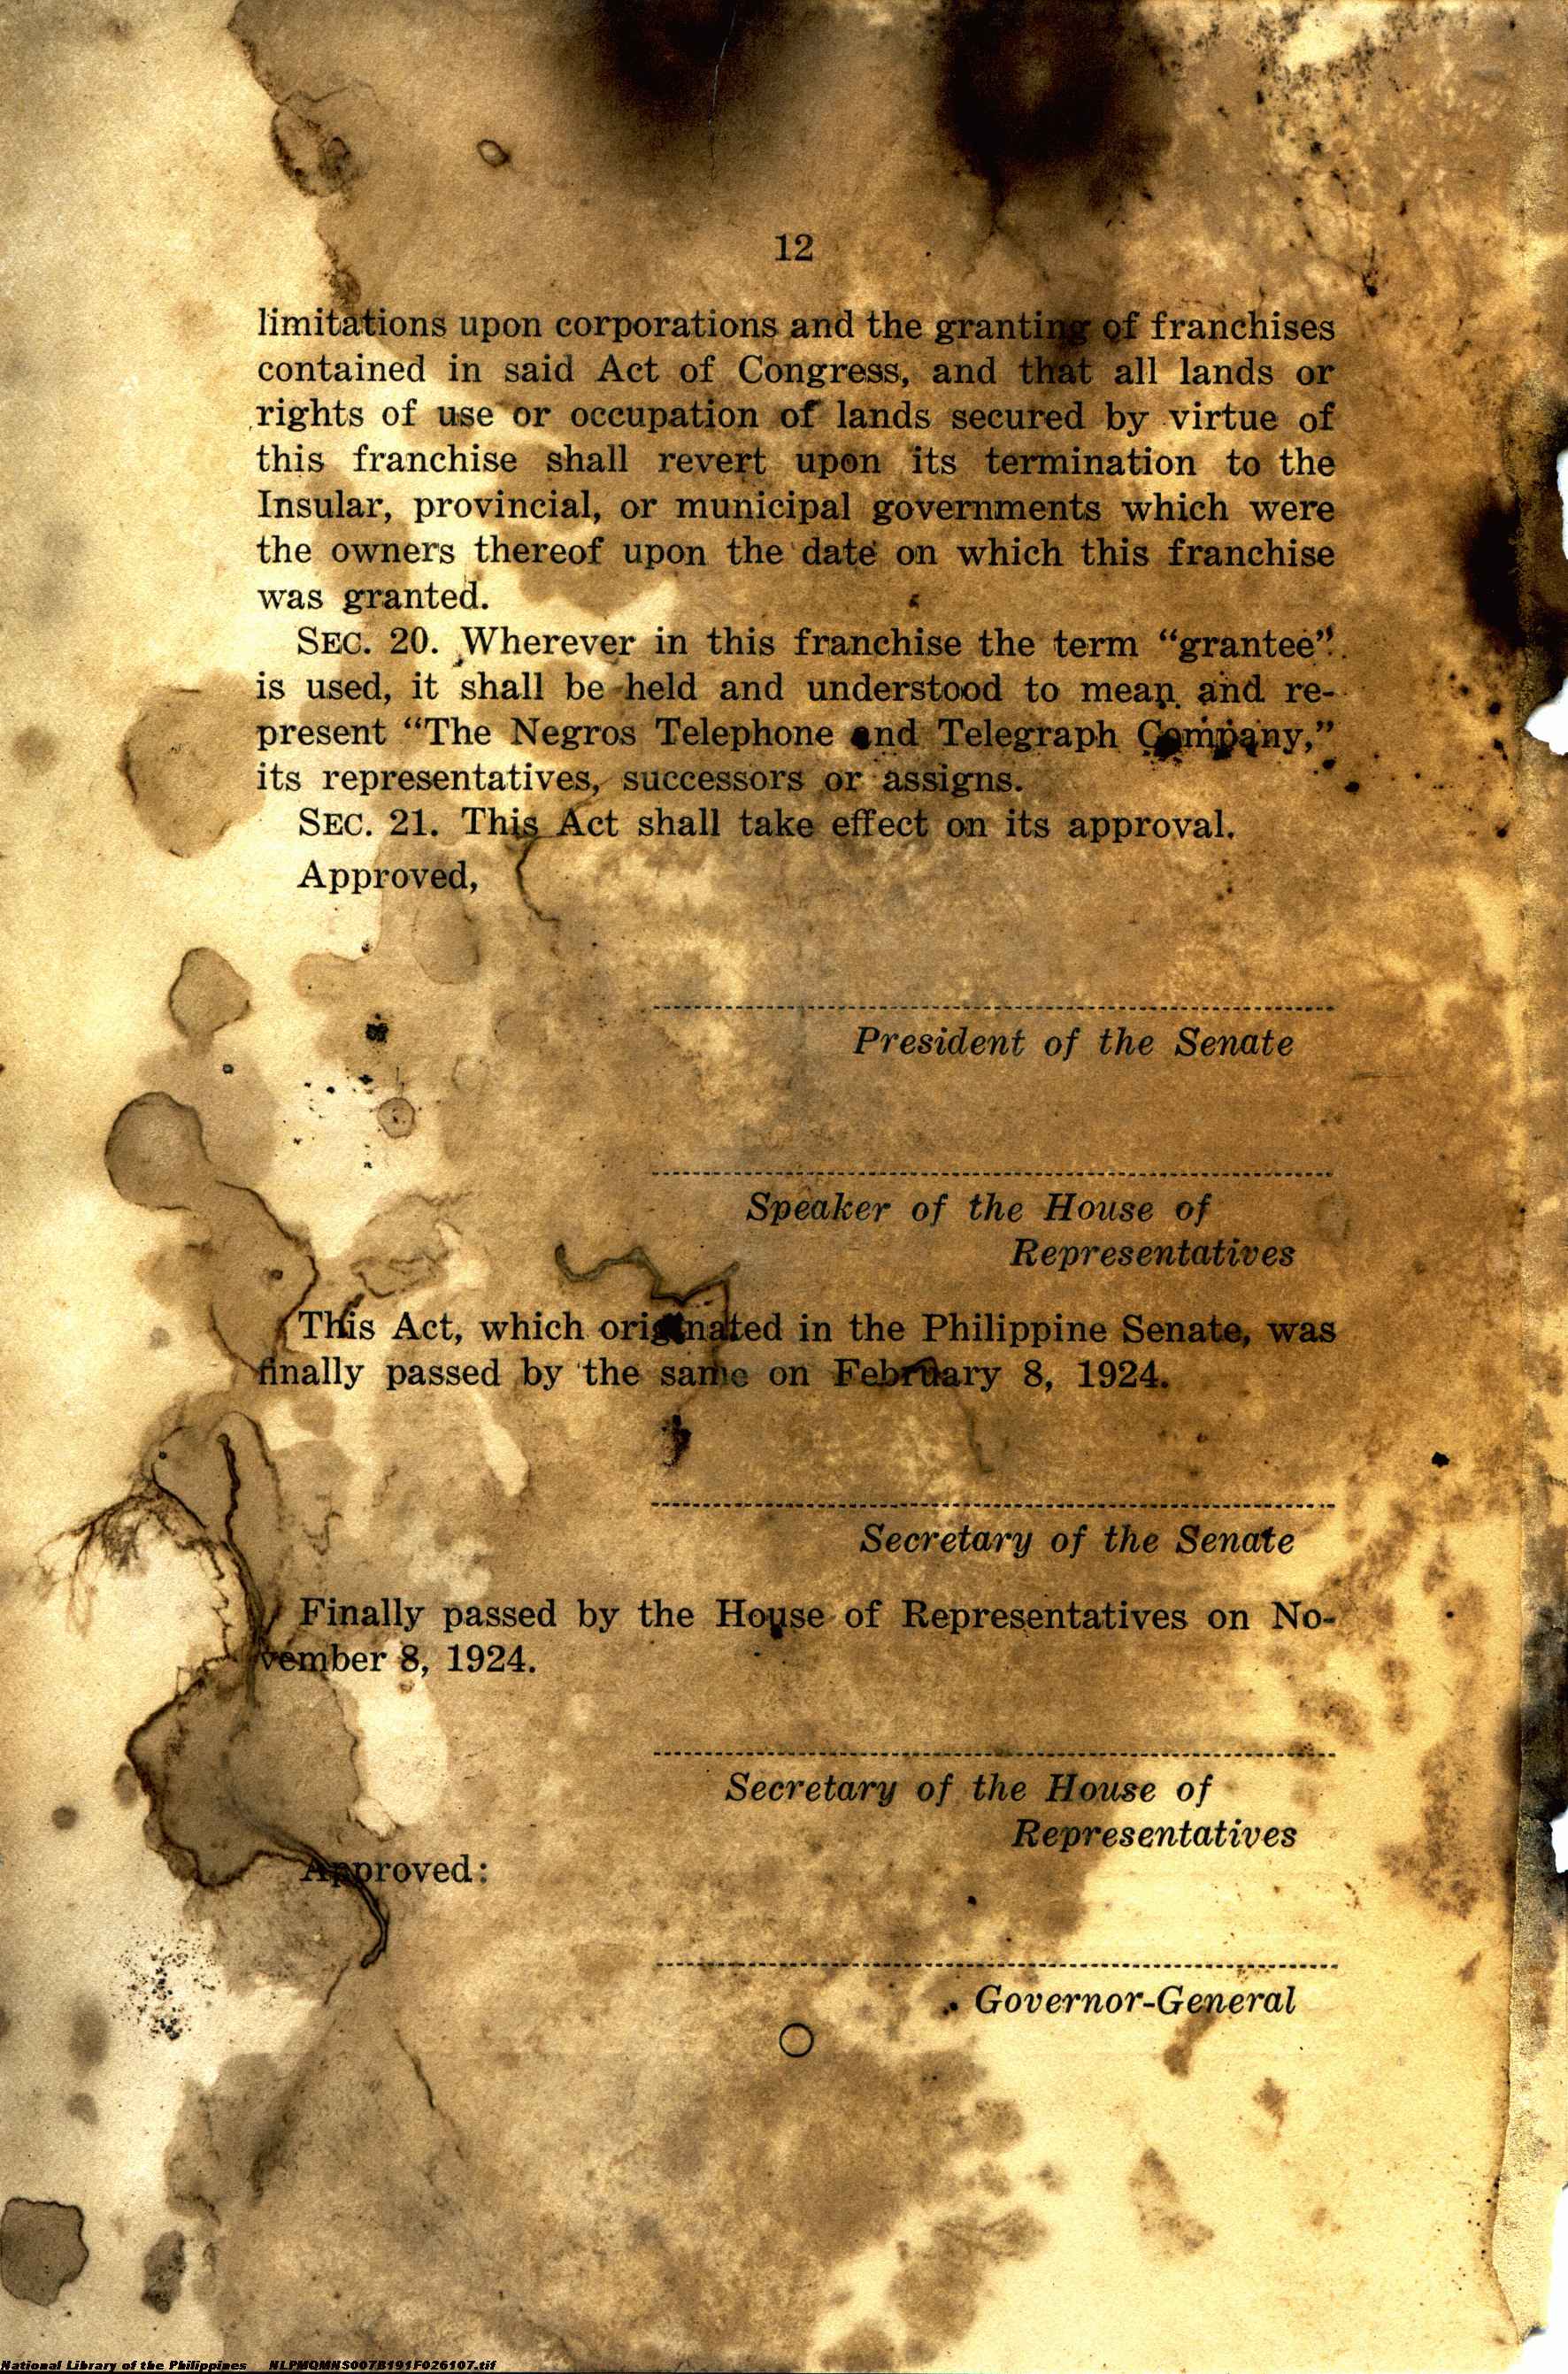 12
limitations upon corporations and the granting of franchises
contained in said Act of Congress, and that all lands or
rights of use or occupation of lands secured by virtue of
this franchise shall revert upon its termination to the
Insular, provincial, or municipal governments which were
the owners thereof upon the date on which this franchise
was granted.
SEC. 20. Wherever in this franchise the term “grantee”
is used, it shall be held and understood to mean and re-
present “The Negros Telephone and Telegraph Company,”
its representatives, successors or assigns.
SEC. 21. This Act shall take effect on its approval.
Approved,
President of the Senate
Speaker of the House of
Representatives
This Act, which originated in the Philippine Senate, was
finally passed by the same on February 8, 1924.
Secretary of the Senate
Finally passed by the House of Representatives on No-
vember 8, 1924.
Secretary of the House of
Representatives
Approved:
Governor-General
National Library of the Philippines NLPMQMNS007B191F026107.tif